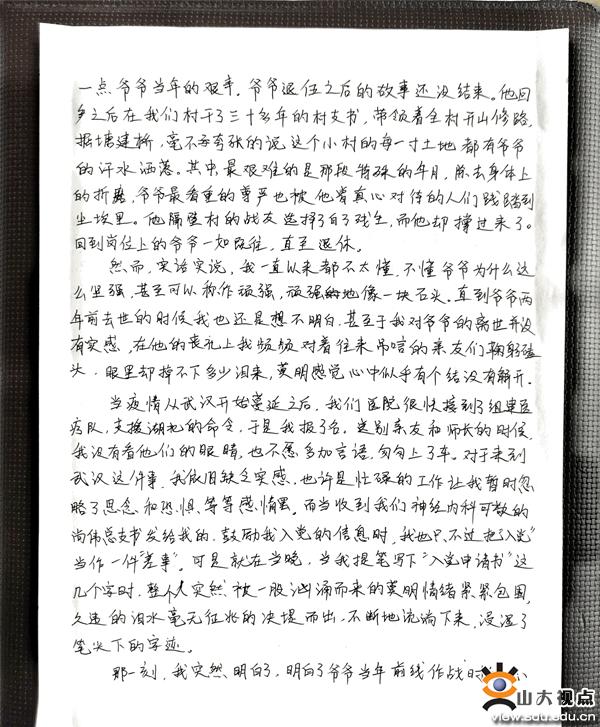 一点爷爷当年的艰辛。爷爷退伍之后的故事还没结束。他回
乡之后在我们村干了三十多年的村支书，带领着全村开山修路，
掘塘建桥，毫不夸张的说，这个小村的每一寸土地都有爷爷
的汗水洒落。其中最艰难的是那段特殊的年月，除去身体上
的折磨，爷爷最看重的尊严也被他曾真心对待的人们践踏到
尘埃里。他隔壁村的战友选择了自戕，而他却撑过来了。
回到岗位上的爷爷一如既往，直至退休。
然而，实话实说，我一直以来都不太懂，不懂爷爷为什么这
么坚强，甚至可以称作顽强，顽强地像一块石头。直到爷爷两
年前去世的时候我也还是想不明白，甚至于我对爷爷的离世并没
有实感，在他的丧礼上我频频对着往来吊唁的亲友们鞠躬磕
头，眼里却掉不下多少泪来，莫明感觉心中似乎有个结没有解开。
当疫情从武汉开始蔓延之后，我们医院很快接到了组建医
疗队，支援湖北的命令，于是我报了名。送别亲友和师长的时候，
我没有看他们的眼睛，也不愿多加言语，匆匆上了车。对于来到
武汉这件事，我依旧缺乏实感，也许是忙碌的工作让我暂时忽
略了思念和恐惧等等感情罢。而当收到我们神经内科可敬的
尚伟总支书发给我的，鼓励我入党的信息时，我也只不过把“入党”
当作一件“差事”。可是就在当晚，当我提笔写下“入党申请书”这
几个字时，整个人突然被一股汹涌而来的莫明情绪紧紧包围，
久违的泪水毫无征兆的决堤而出，不断地流淌下来，浸湿了
笔尖下的字迹。
那一刻，我突然明白了，明白了爷爷当年前线作战时
山大视点
view.sdu.edu.cn